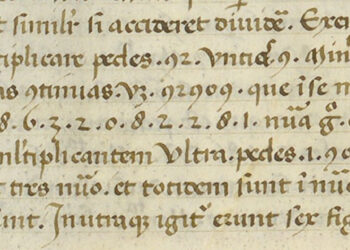 t similr si accideret diuidē. Exem
tiplicare pedes .92. Vntie 9. Min
as 9tinuas. Vz. 92909. que ise m
8. 6. 3. 2. 0. 8. 2. 2. 8. 1. nūa gͦ.
multiplicantem Vltra. pedes. 1.
t tres nūo. et totidem sunt i nūo
sunt. In utraqʒ igit erunt sex fig